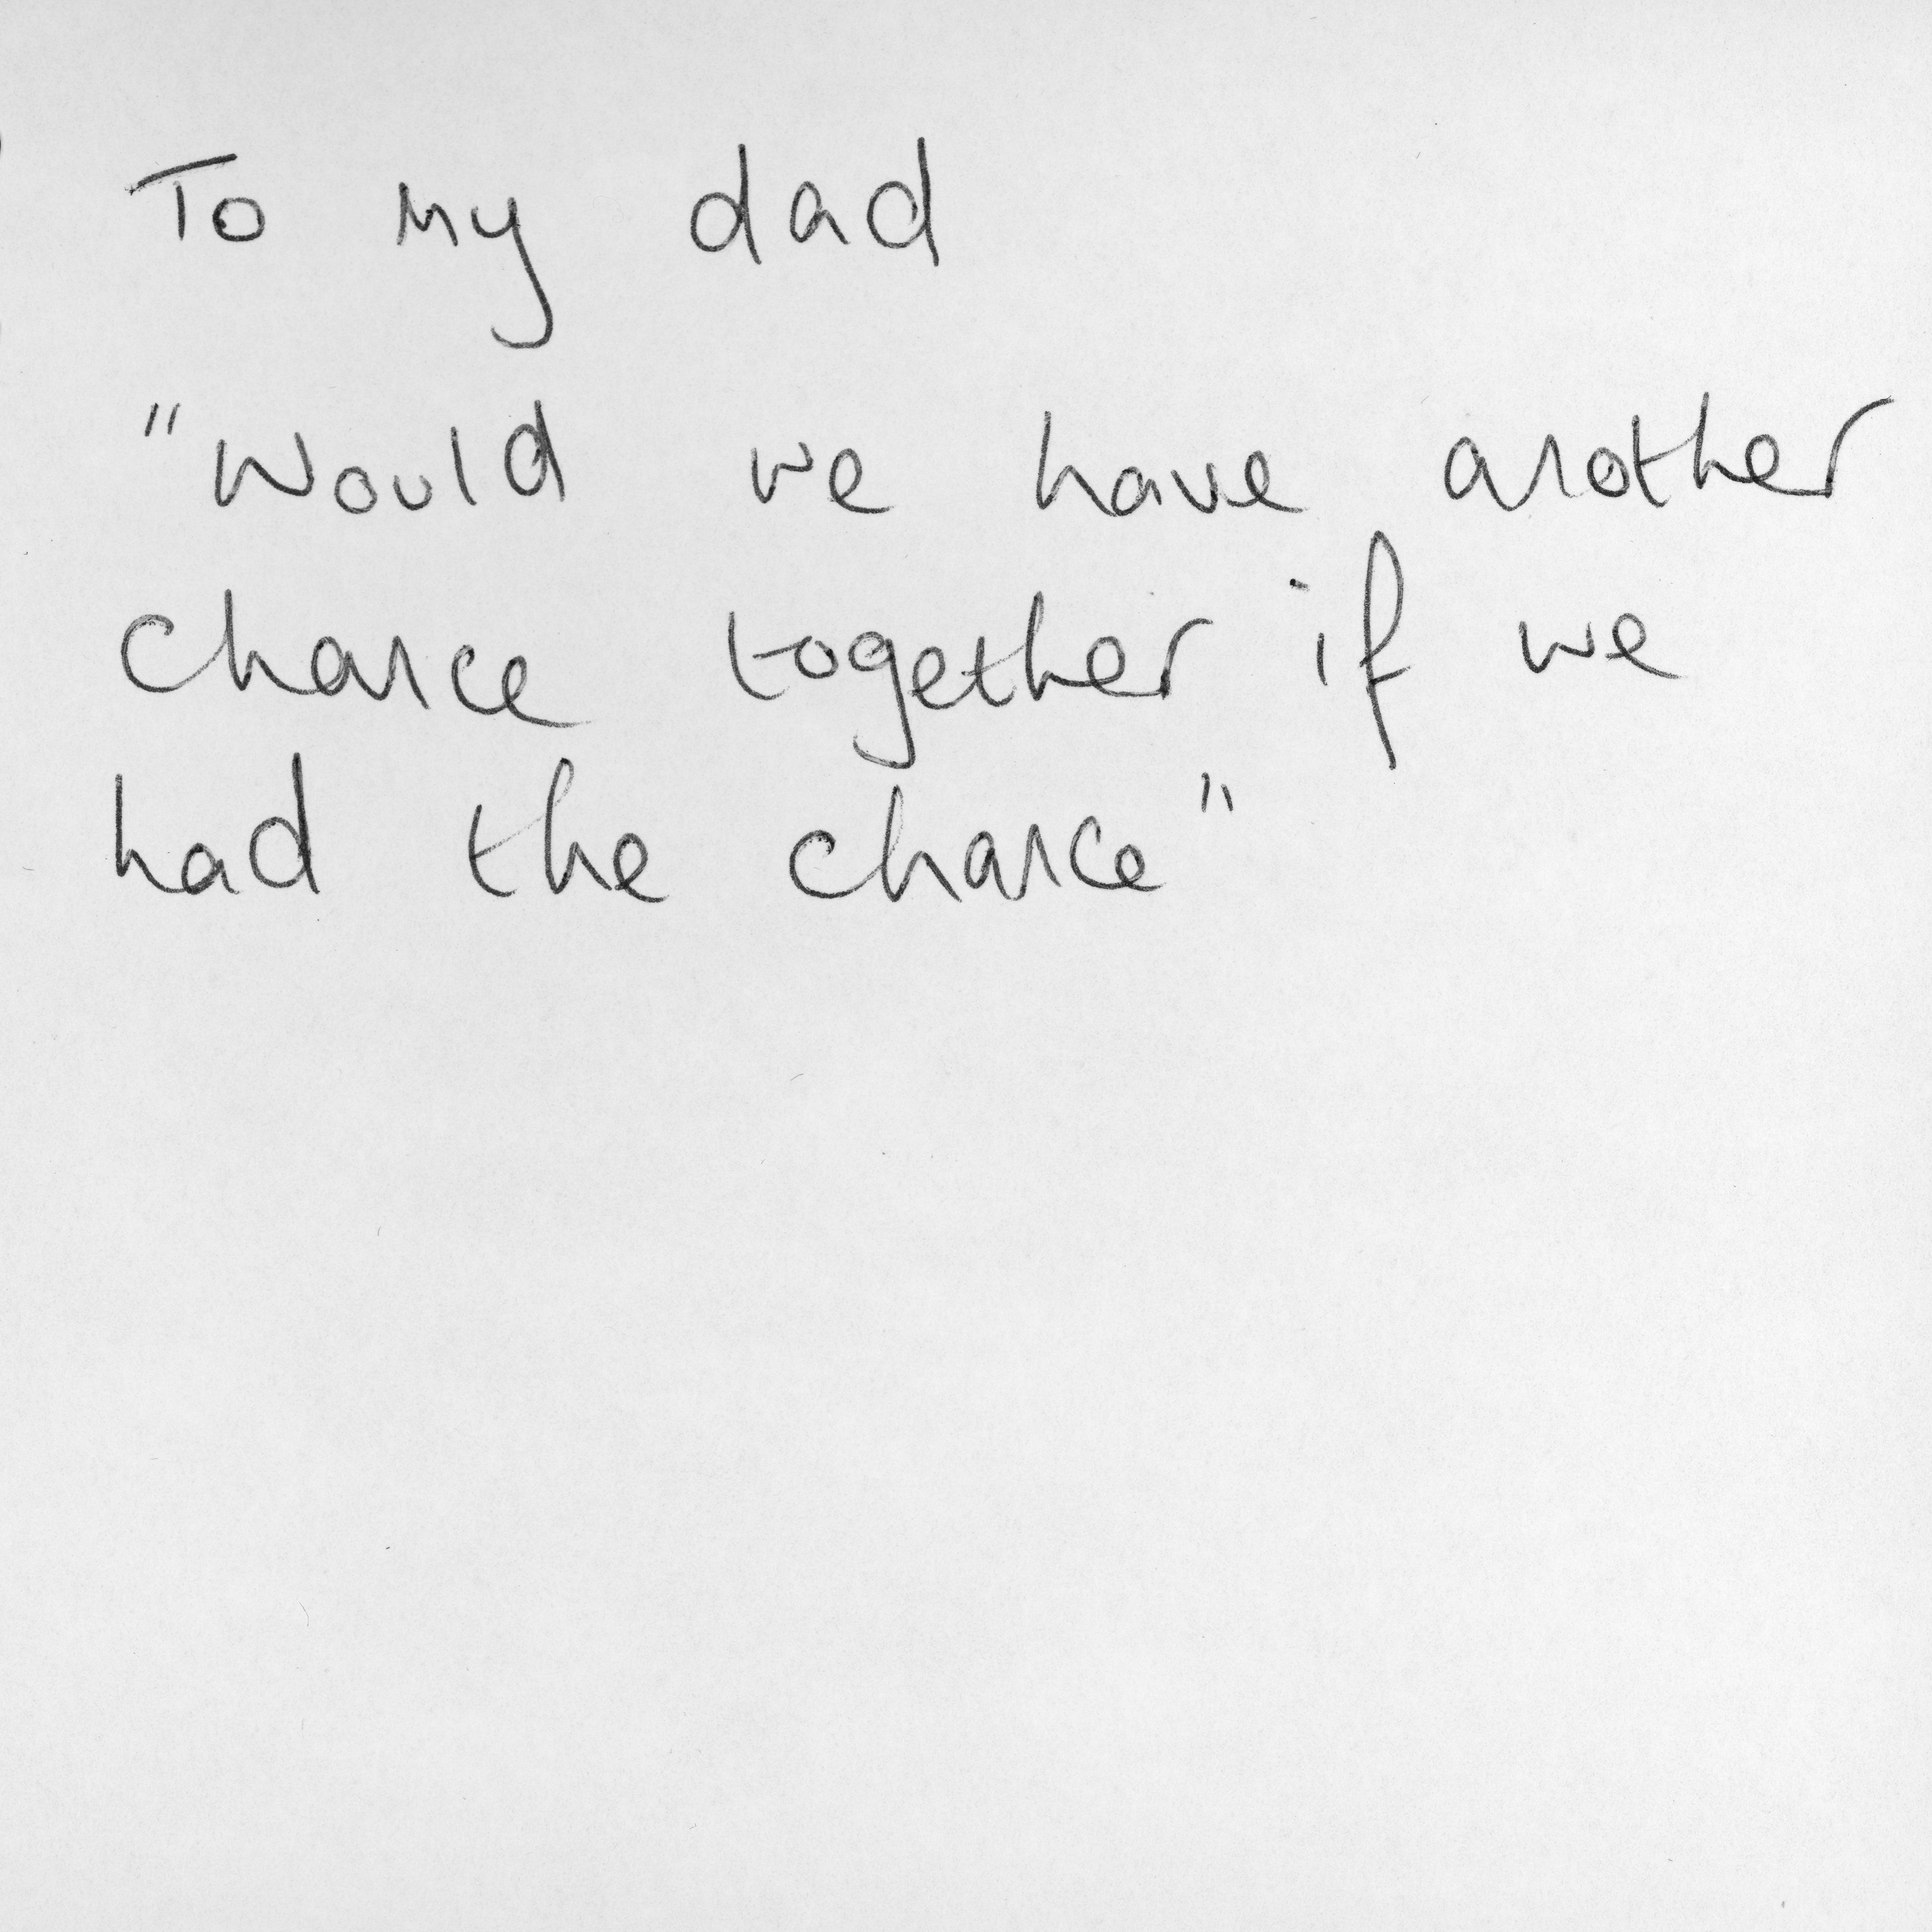 To my dad
"Would we have another
chance together if we
had the chance"